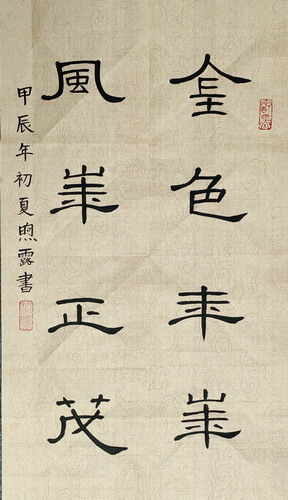 金色年華
風華正茂
甲辰年初夏煦露書